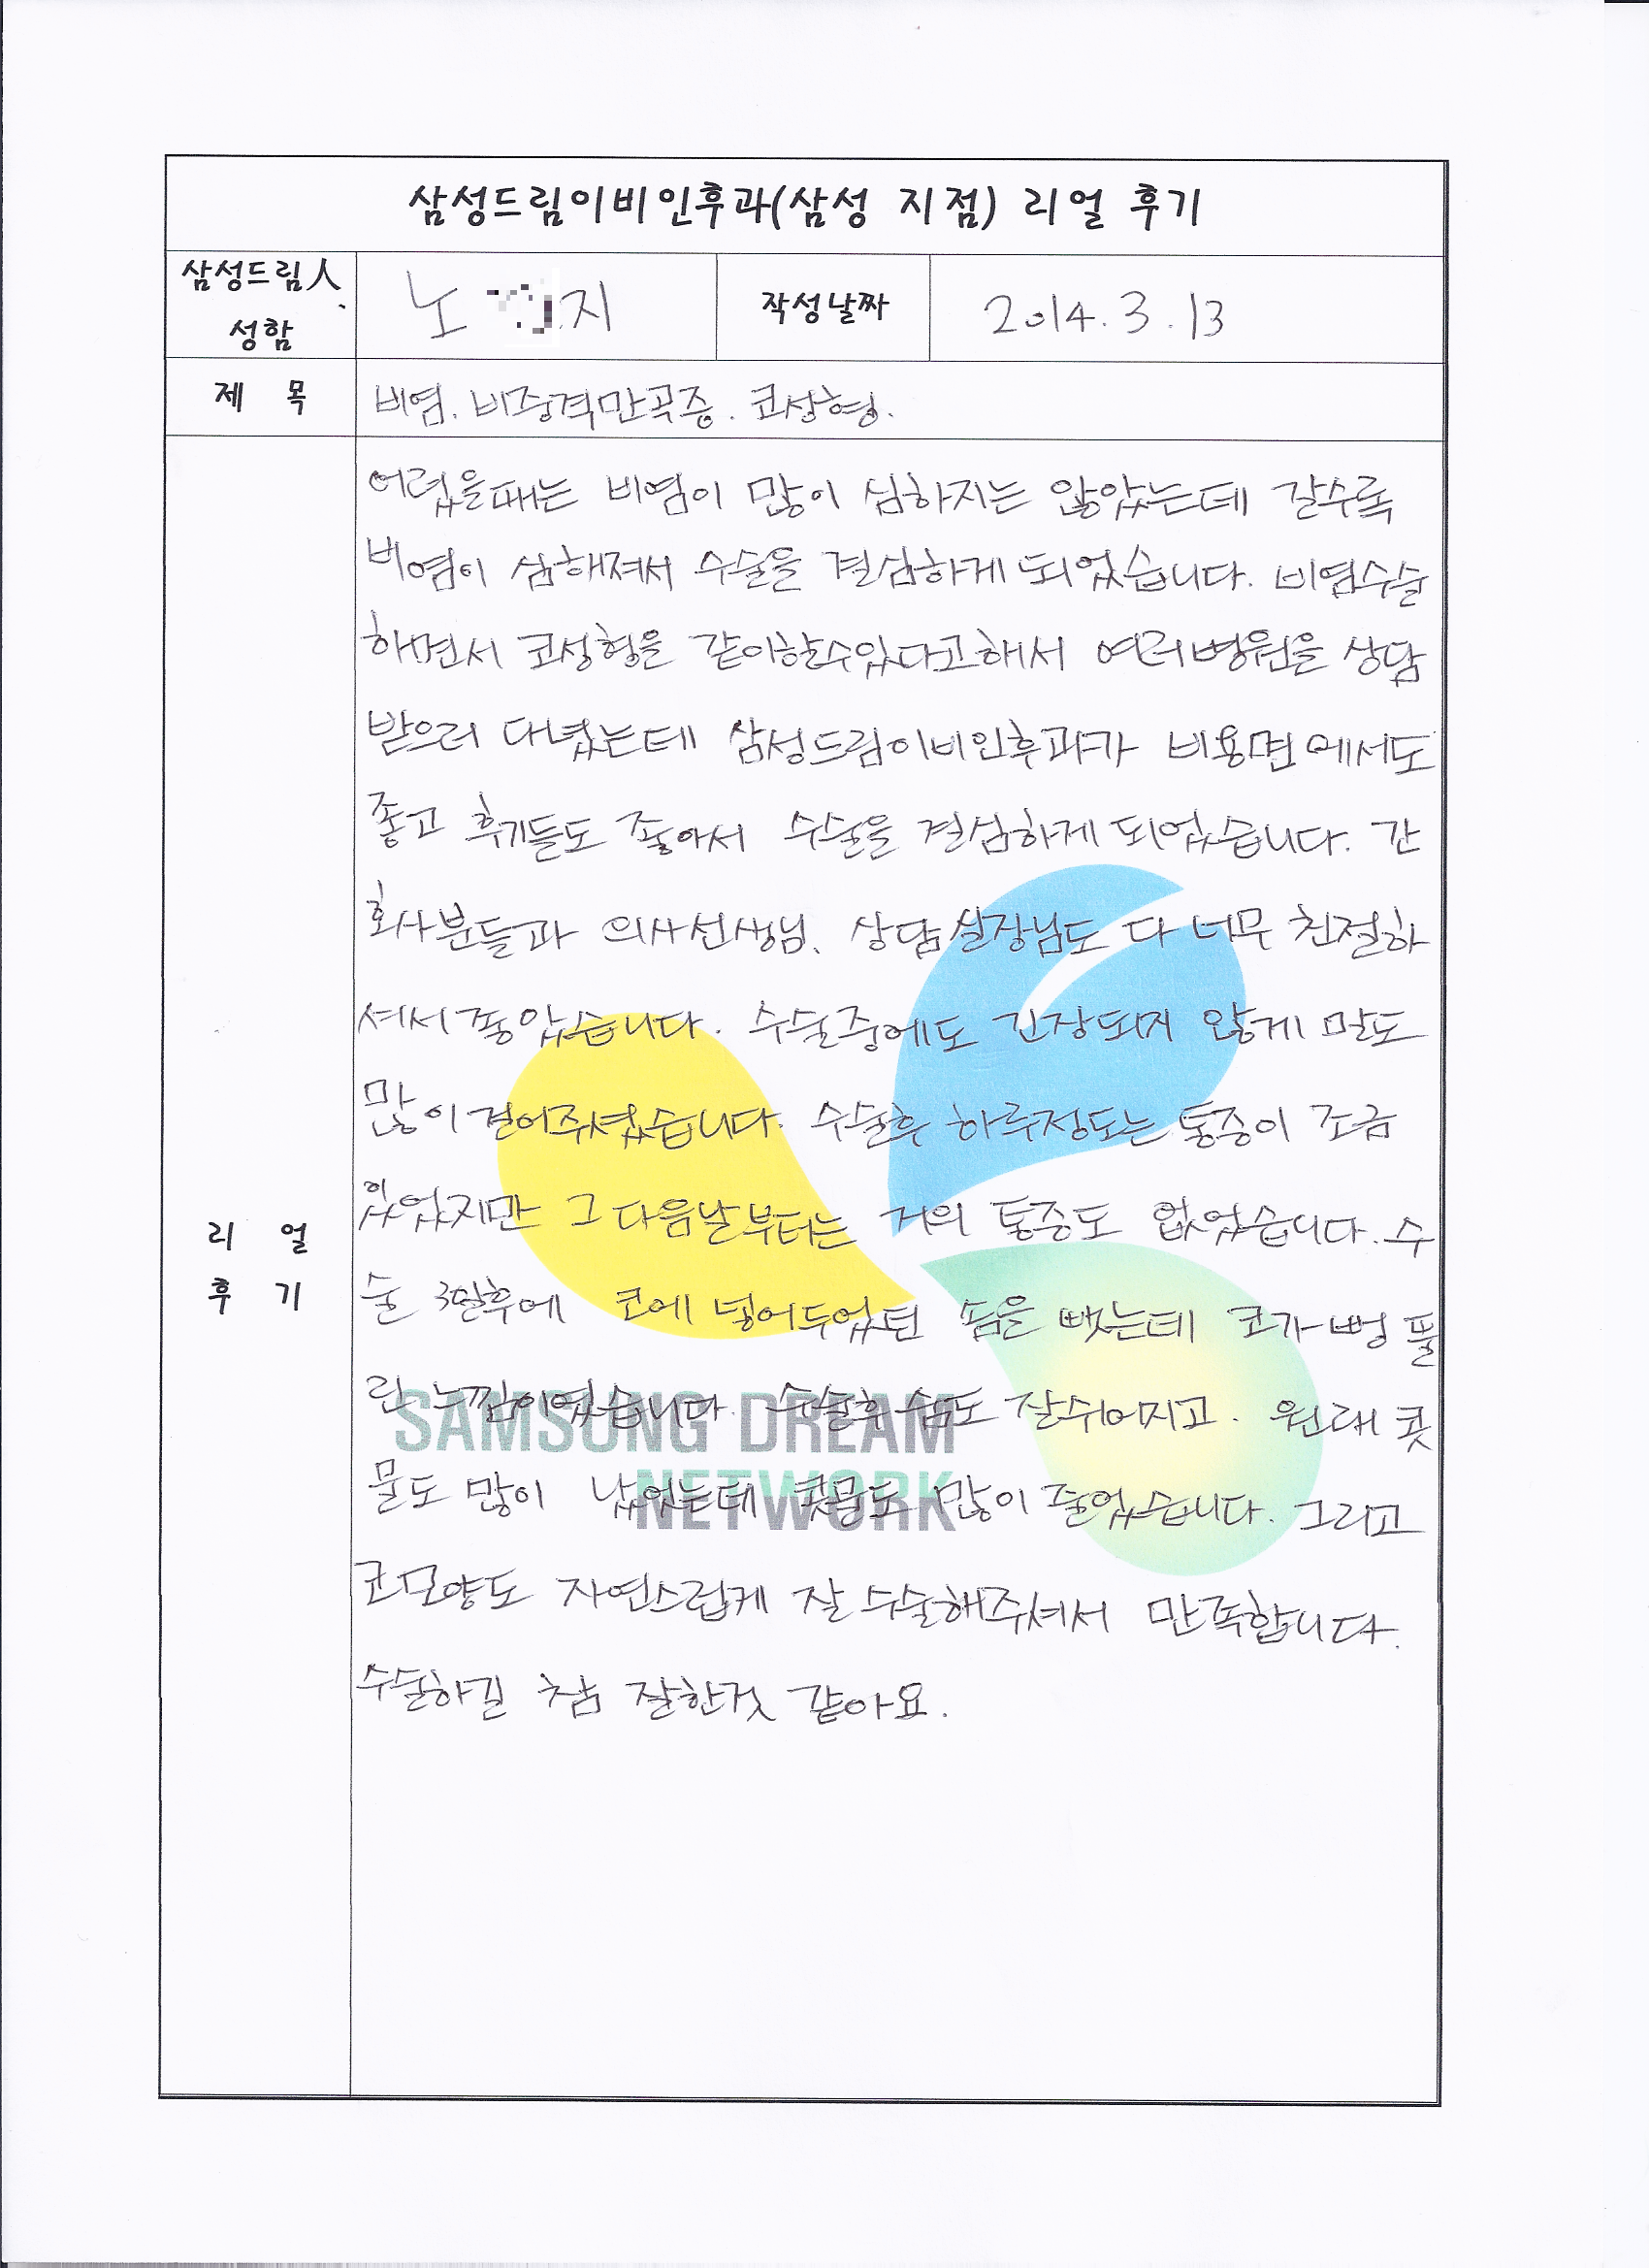 삼성드림이비인후과(삼성 지점) 리얼 후기
삼성드림人
성함
노 지
작성날짜
2014. 3. 13
제 목
비염. 비중격만곡증. 코성형.
어렸을때는 비염이 많이 심하지는 않았는데 갈수록
비염이 심해져서 수술을 결심하게 되었습니다. 비염수술
하면서 코성형을 같이할수있다고해서 여러병원을 상담
받으러 다녔는데 삼성드림이비인후과가 비용면에서도
좋고 후기들도 좋아서 수술을 결심하게 되었습니다. 간
호사분들과 의사선생님, 상담실장님도 다 너무 친절하
셔서 좋았습니다. 수술중에도 긴장되지 않게 말도
많이걸어주셨습니다. 수술후 하루정도는 통증이 조금
있었지만 그 다음날부터는 거의 통증도 없었습니다. 수
술 3일후에 코에 넣어두었던 솜을 뺐는데 코가 뻥 뚫
린 느낌이었습니다. 수술후 숨도 잘쉬어지고. 원래 콧
물도 많이 났었는데 콧물도 많이 줄었습니다. 그리고
코모양도 자연스럽게 잘 수술해주셔서 만족합니다.
수술하길 참 잘한것 같아요.
리 얼
후 기
SAMSUNG DREAM
NETWORK